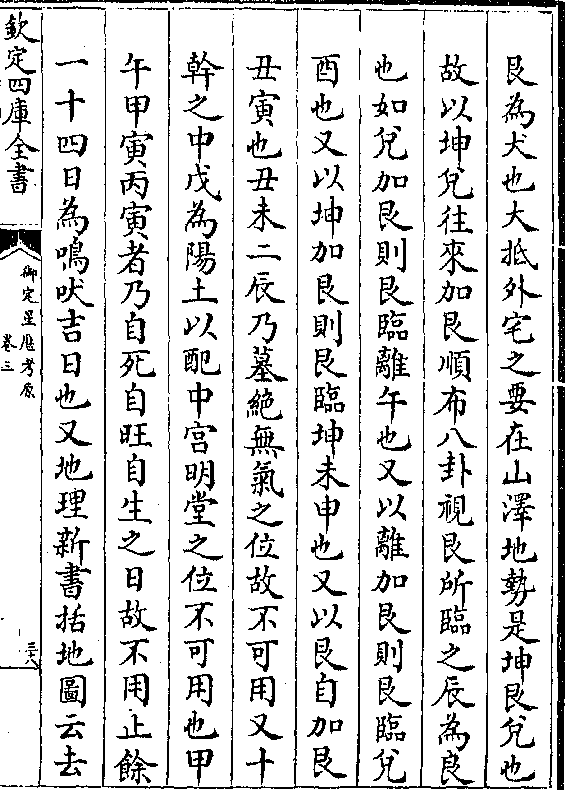 艮為犬也大抵外宅之要在山澤地勢是坤艮兌也
故以坤兌往來加艮順布八卦視艮所臨之辰為良
也如兌加艮則艮臨離午也又以離加艮則艮臨兌
酉也又以坤加艮則艮臨坤未申也又以艮自加艮
丑寅也丑未二辰乃墓絶無氣之位故不可用又十
幹之中戊為陽土以配中宫明堂之位不可用也甲
午甲寅丙寅者乃自死自旺自生之日故不用止餘
一十四日為鳴吠吉日也又地理新書括地圖云去
欽定四庫全書
御定星厯考原
卷三
三六